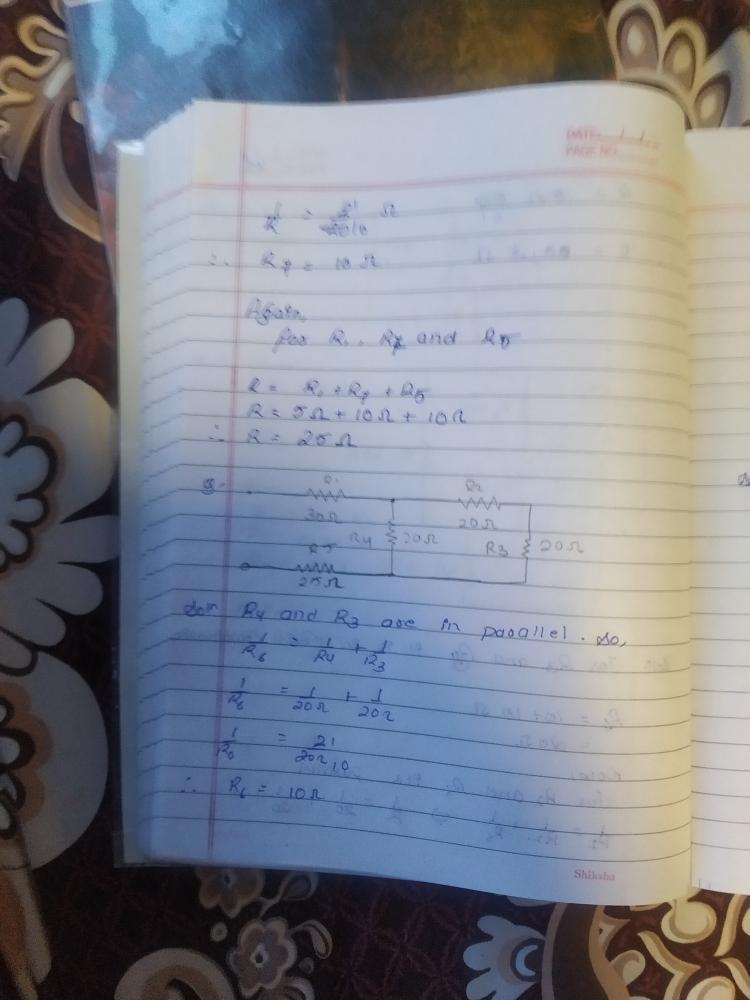 DATE: / /
PAGE NO.
1/R = 2 1/20 10 Ω
∴ R7 = 10 Ω
Again,
for R1, R7 and R5
R = R1 + R7 + R5
R = 5Ω + 10Ω + 10Ω
∴ R = 25Ω
R1 R2
30Ω 20Ω
R4 20Ω R3 20Ω
R5
25Ω
Solⁿ R4 and R3 are in parallel. So,
1/R6 = 1/R4 + 1/R3
1/R6 = 1/20Ω + 1/20Ω
1/R6 = 2 1/20Ω 10
∴ R6 = 10Ω
Shiksha